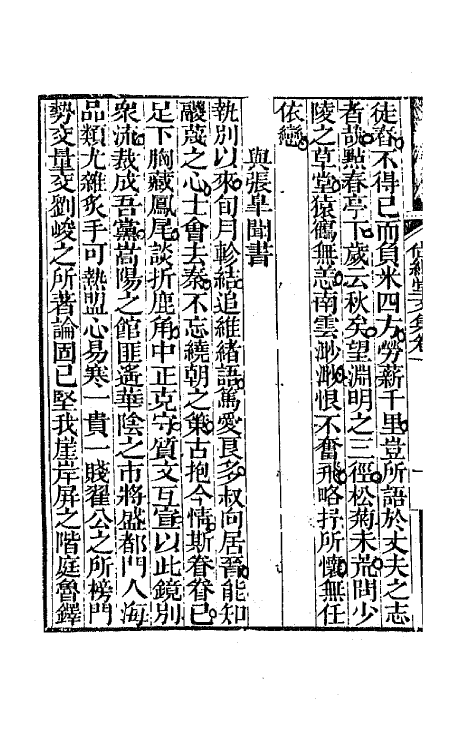 徒舂不得已而負米四方勞薪千里豈所語於丈夫之志
者哉㸃春亭下歲云秋矣望淵明之三徑松菊未荒問少
陵之草堂猿鶴無恙南雲渺渺恨不奮飛略抒所懷無任
依戀
與張臯聞書
執別以來旬月軫結追維緒語篤愛良多叔向居晉能知
鬷蔑之心士會去秦不忘繞朝之策古抱今情斯眷眷已
足下胸藏鳳尾談折鹿角中正克守質文互宣以此鏡別
衆流裁成吾黨嵩陽之館匪遙華陰之市將盛都門人海
品類尤雜炙手可熱盟心易寒一貴一賤翟公之所榜門
勢交量交劉峻之所著論固已堅我崖岸屏之階庭魯鐸
尚絅堂文集卷